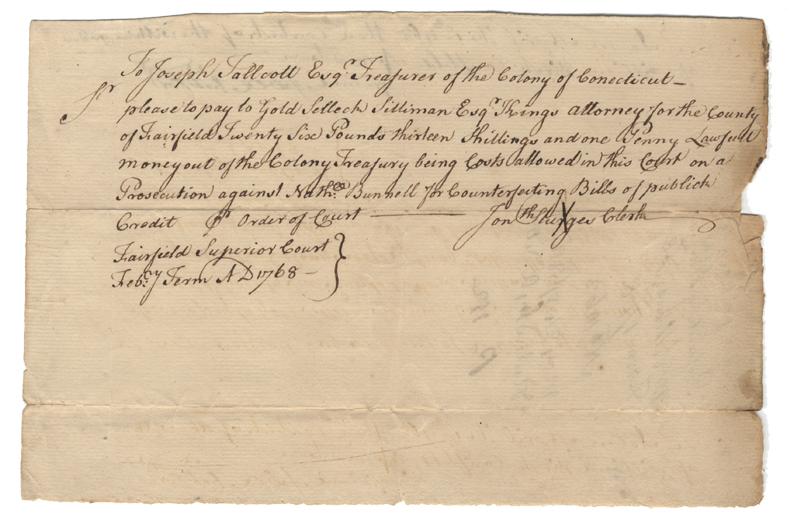 To Joseph Tallcott Esqr. Treasurer of the Colony of Conecticut—
Sr please to pay to Gold Selleck Silliman Esqr. Kings attorney for the County
of Fairfield Twenty Six Pounds thirteen Shillings and one Penny Lawfull
money out of the Colony Treasury being Costs allowed in this Court on a
Prosecution against Nathll. Bunnell for Counterfecting Bills of publick
Credit Pr Order of Court — Jonth Sturges Clerk
Fairfield Superior Court
Febry Term AD 1768—